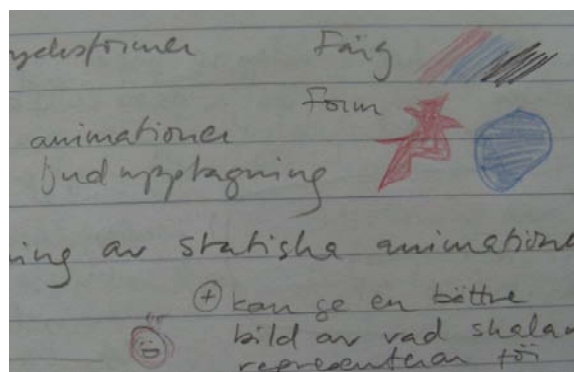 Färg
Form
animationer
ljudupptagning
ning av statiska animatione
+ kan ge en bättre
bild av vad skalan
representerar för